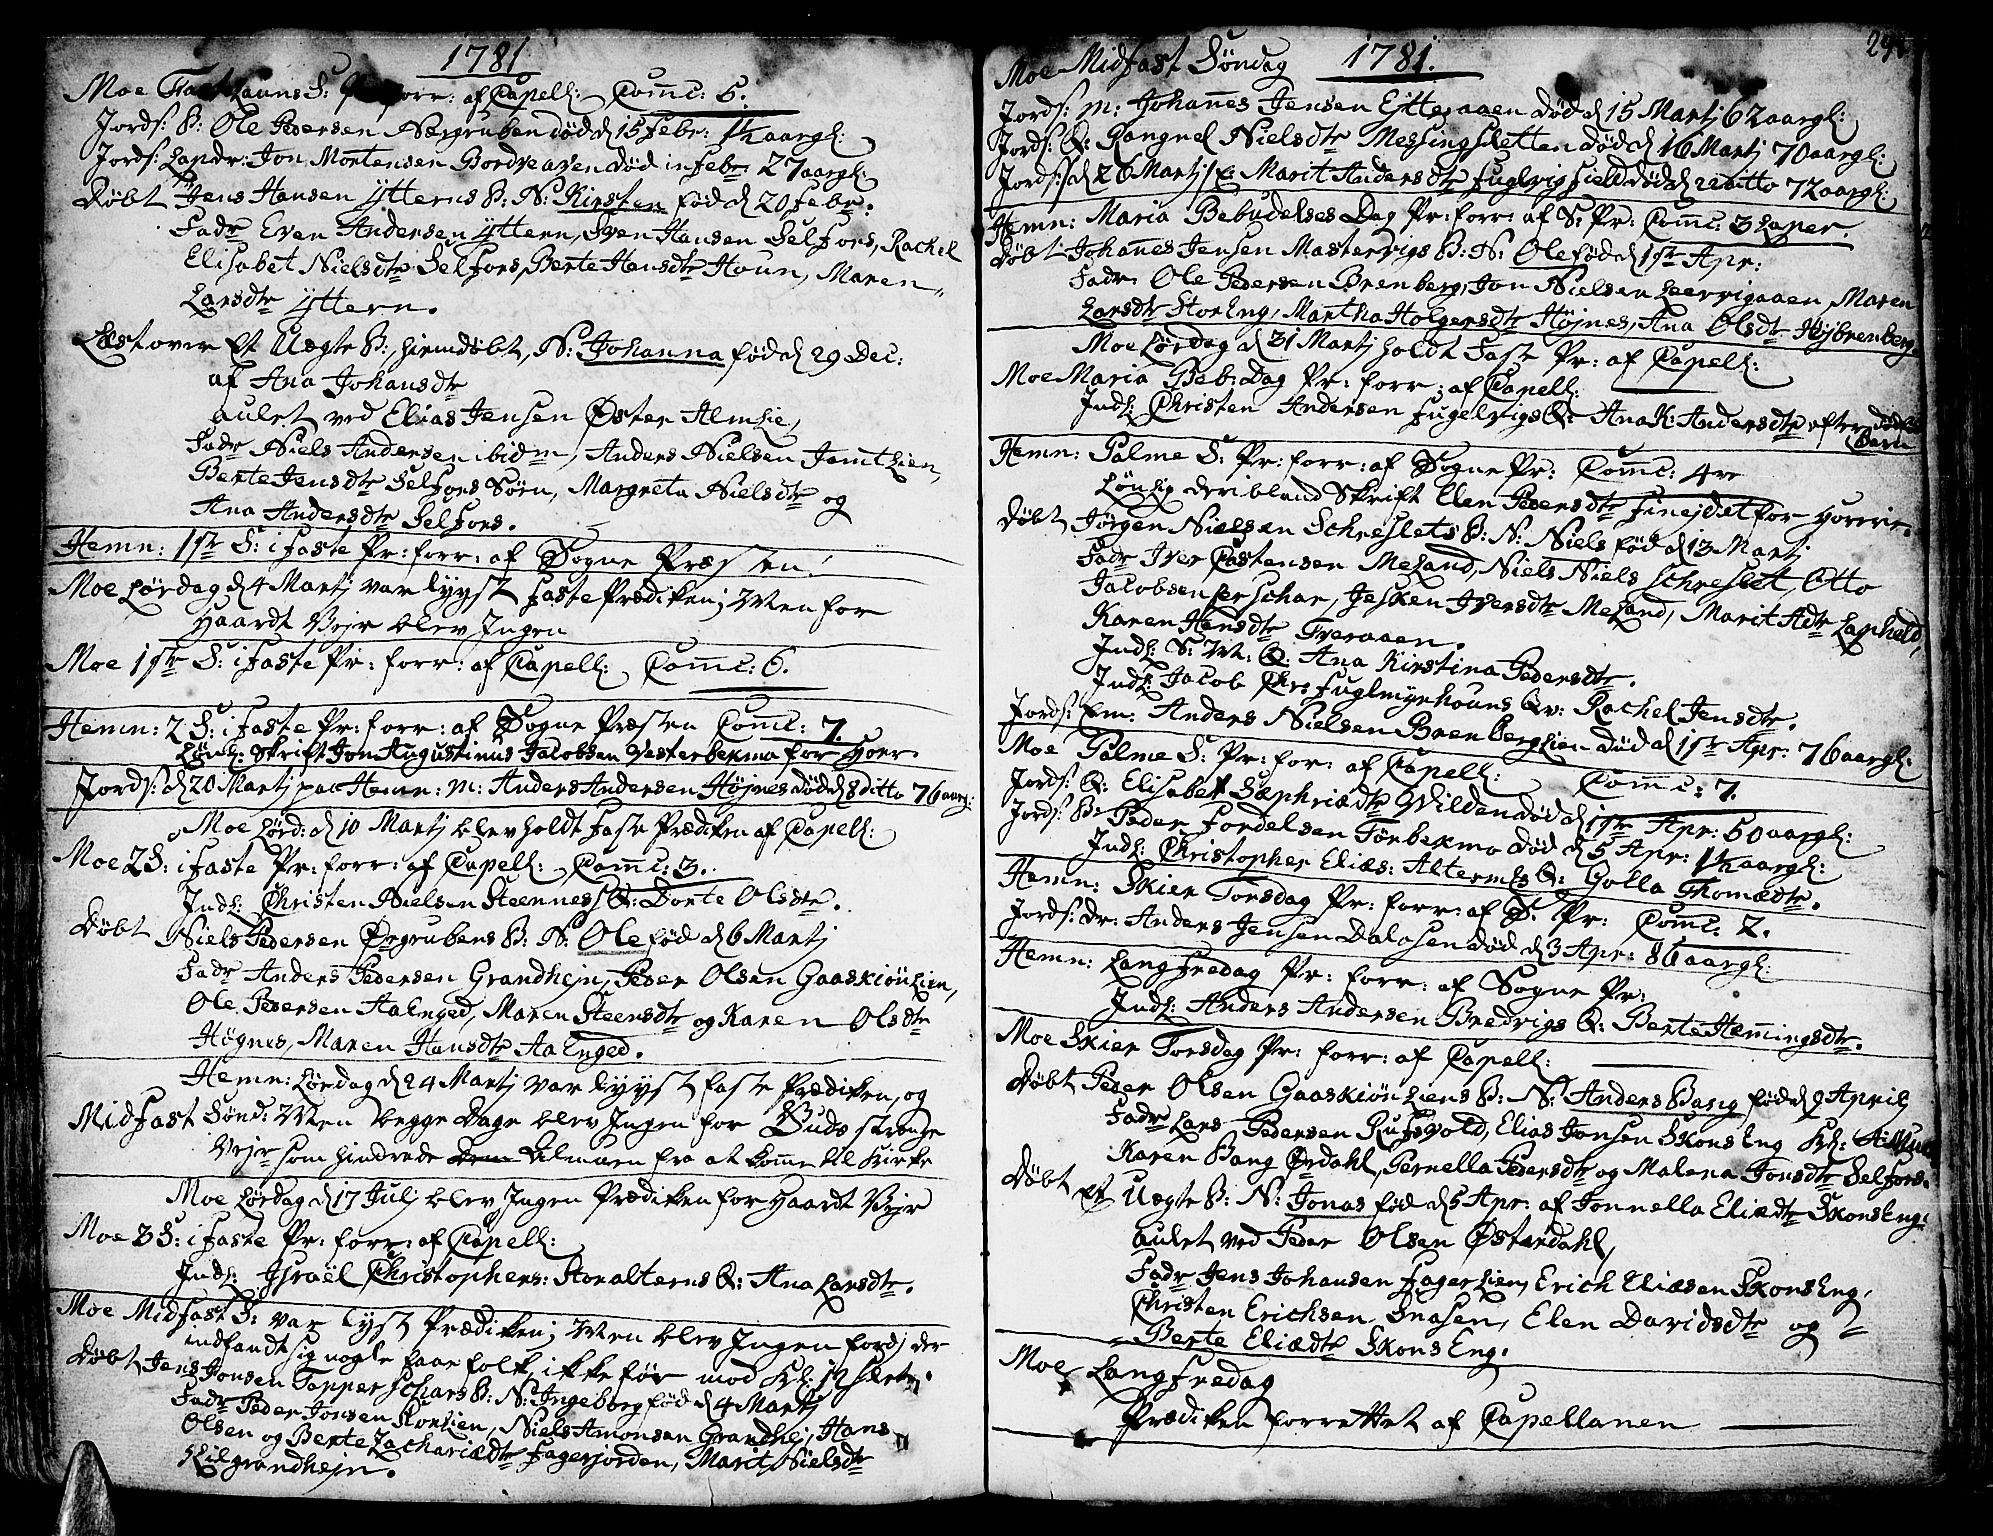 1781
Moe Fastelauns S: Pr: forr: af Capell: Comc: 5.
Jords: B: Ole Pedersen Nergruben død d 15 Febr: 1½ aargl:
Jords: Landr: Jon Mortensen Bordveaven død in Febr: 27 aargl:
Døbt Jens Hansen Ytterns B: N: Kirsten fød d 20 Febr.
Fadr Even Andersen Yttern, Sven Hansen Selfors, Rachel
Elisabet Nielsdtr Selfors, Berte Hansdtr Houn, Maren
Larsdtr Yttern.
Læst over Et Uægte B: hiemdøbt, N: Johanna fød d 29 Dec:
af Ana Johansdtr
aulet ved Elias Jensen Øster Almlie,
Fadr Niels Andersen ibidm, Anders Nielsen Jamtlien,
Berte Jensdtr Selfors Sørn, Margreta Nielsdtr og
Ana Andersdtr Selfors.
Hemn: 1str S: i Faste Pr: forr: af Sogne Præsten!
Moe Lørdag d 4 Martj var lyyst Faste Prædiken; Men for
haardt Vejr blev Ingen
Moe 1str S: i Faste Pr: forr: af Capell: Comc: 6.
Hemn: 2 S: i Faste Pr: forr: af Sogne Præsten Comc: 7.
Lønl: Skrift Jon Augustinus Jacobsen Vesterbekmo for Hoer.
Jords: d 20 Martj paa Hemn: M: Anders Andersen Højnes død d 8 ditto 76 aarg:
Moe Lørd: d 10 Martj blev holdt Faste Prædiken af Capell:
Moe 2 S: i Faste Pr: forr: af Capell: Comc: 3.
Indl: Christen Nielsen Steennes Q: Dorte Olsdtr.
Døbt Niels Pedersen Ørgrubens B: N: Ole fød d 6 Martj
Fadr Anders Pedersen Grandhejn, Peder Olsen Gaaskiønlien,
Ole Pedersen Aalnged, Maren Steensdtr og Karen Olsdtr
Høgnes, Maren Hansdtr Aa Enged.
Hemn: Lørdag d 24 Martj var lyyst Faste Prædiken, og
Midfast Sønd: Men begge Dage blev Ingen for Guds strenge
Vejr som hindrede Almuen fra at komme til Kirke
Moe Lørdag d 17 Julj blev Ingen Prædiken for haardt Vejr
Moe 3 S: i Faste Pr: forr: af Capell:
Indl: Israël Christophers: Storalterns Q: Ana Larsdtr.
Moe Midfast S: var lyst Prædiken; Men blev Ingen fordj der
indfandt sig nogle faae folk, ikke før mod Kl: 12 Slet.
Døbt Jens Jonsen Topperschars B: N: Ingeborg fød d 4 Martj
Fadr Peder Jonsen Storlien, Niels Amonsen Grandhej, Hans
Olsen og Berte Zachariædtr Fagerjorden, Marit Nielsdtr
Lilgrandhejn.
Moe Midfast Søndag 1781.
Jords: M: Johannes Jensen Ytteraaen død d 15 Martj 62 aargl:
Jords: Q: Rangnel Nielsdtr Messingsletten død d 16 Martj 70 aargl:
Jords: d 26 Martj Marit Andersdtr Fuglvigfield død d 22 ditto 72 aargl:
Hemn: Maria Bebudelses Dag Pr: forr: af S: Pr: Comc: 3 Laper.
Døbt Johannes Jensen Mastervigs B: N: Ole fød d 1str Apr:
Fadr Ole Pedersen Brenberg, Jon Nielsen Leervigaaen, Maren
Larsdtr Storeng, Martha Holgersdtr Højnes, Ana Olsdtr Højbrenberg.
Moe Lørdag d 31 Martj holdt Faste Pr: af Capell:
Moe Maria Beb: Dag Pr: forr: af Capell:
Indl: Christen Andersen Fugelvigs Q: Ana K: Andersdtr efter
Barn
Hemn: Palme S: Pr: forr: af Sogne Pr: Comc: 4re
Lønlig deribland Skrift Elen Pedersdtr Finejdet for Horrie.
Døbt Jørgen Nielsen Schreslets B: N: Niels fød d 13 Martj
Fadr Iver Castensen Meland, Niels Niels Schreslet, Otto
Jacobsen Perschar, Jesken Iversdtr Meland, Marit Adr Lapheld,
Karen Hansdtr Tveraaen.
Indl: S: M: Q: Ana Kirstina Pedersdtr.
Indl: Jacob Chrs Fuglmyrhouns Qv: Rachel Jensdtr.
Jords: Em: Anders Nielsen Brenberglien død d 1str Apr: 76 aargl:
Moe Palme S: Pr: for: af Capell: Comc: 7.
Jords: Q: Elisabet Sæphriædtr Vilden død d 1str Apr: 50 aargl:
Jords: B: Peder Fordelsen Torbekmo død d 5 Apr: 1½ aargl:
Indl: Christopher Elias: Alterns Q: Golla Thomædtr.
Hemn: Skier Torsdag Pr: forr: af S: Pr: Comc: 2.
Jords: Dr: Anders Jensen Dalosen død d 3 Apr: 86 aargl:
Hemn: Langfredag Pr: forr: af Sogne Pr:
Indl: Anders Andersen Bredvigs Q: Berte Hemingsdtr.
Moe Skier Torsdag Pr: forr: af Capell:
Døbt Peder Olsen Gaaskiønliens B: N: Anders Bang fød d 9 April
Fadr Lars Pedersen Rufsvold, Elias Jonsen Skonseng
Karen Bang Ørdahl, Pernella Pedersdtr og Malena Jonsdtr Selfors.
Døbt et Uægte B: N: Jonas fød d 5 Apr: af Jonnella Eliædtr Skonseng:
aulet ved Peder Olsen Østerdahl,
Fadr Jens Johansen Fagerlien, Erich Eliæsen Skonseng,
Christen Erichsen Snasen, Elen Davidsdtr og
Berte Eliædtr Skonseng.
Moe Langfredag
Prædiken forrettet af Capellanen